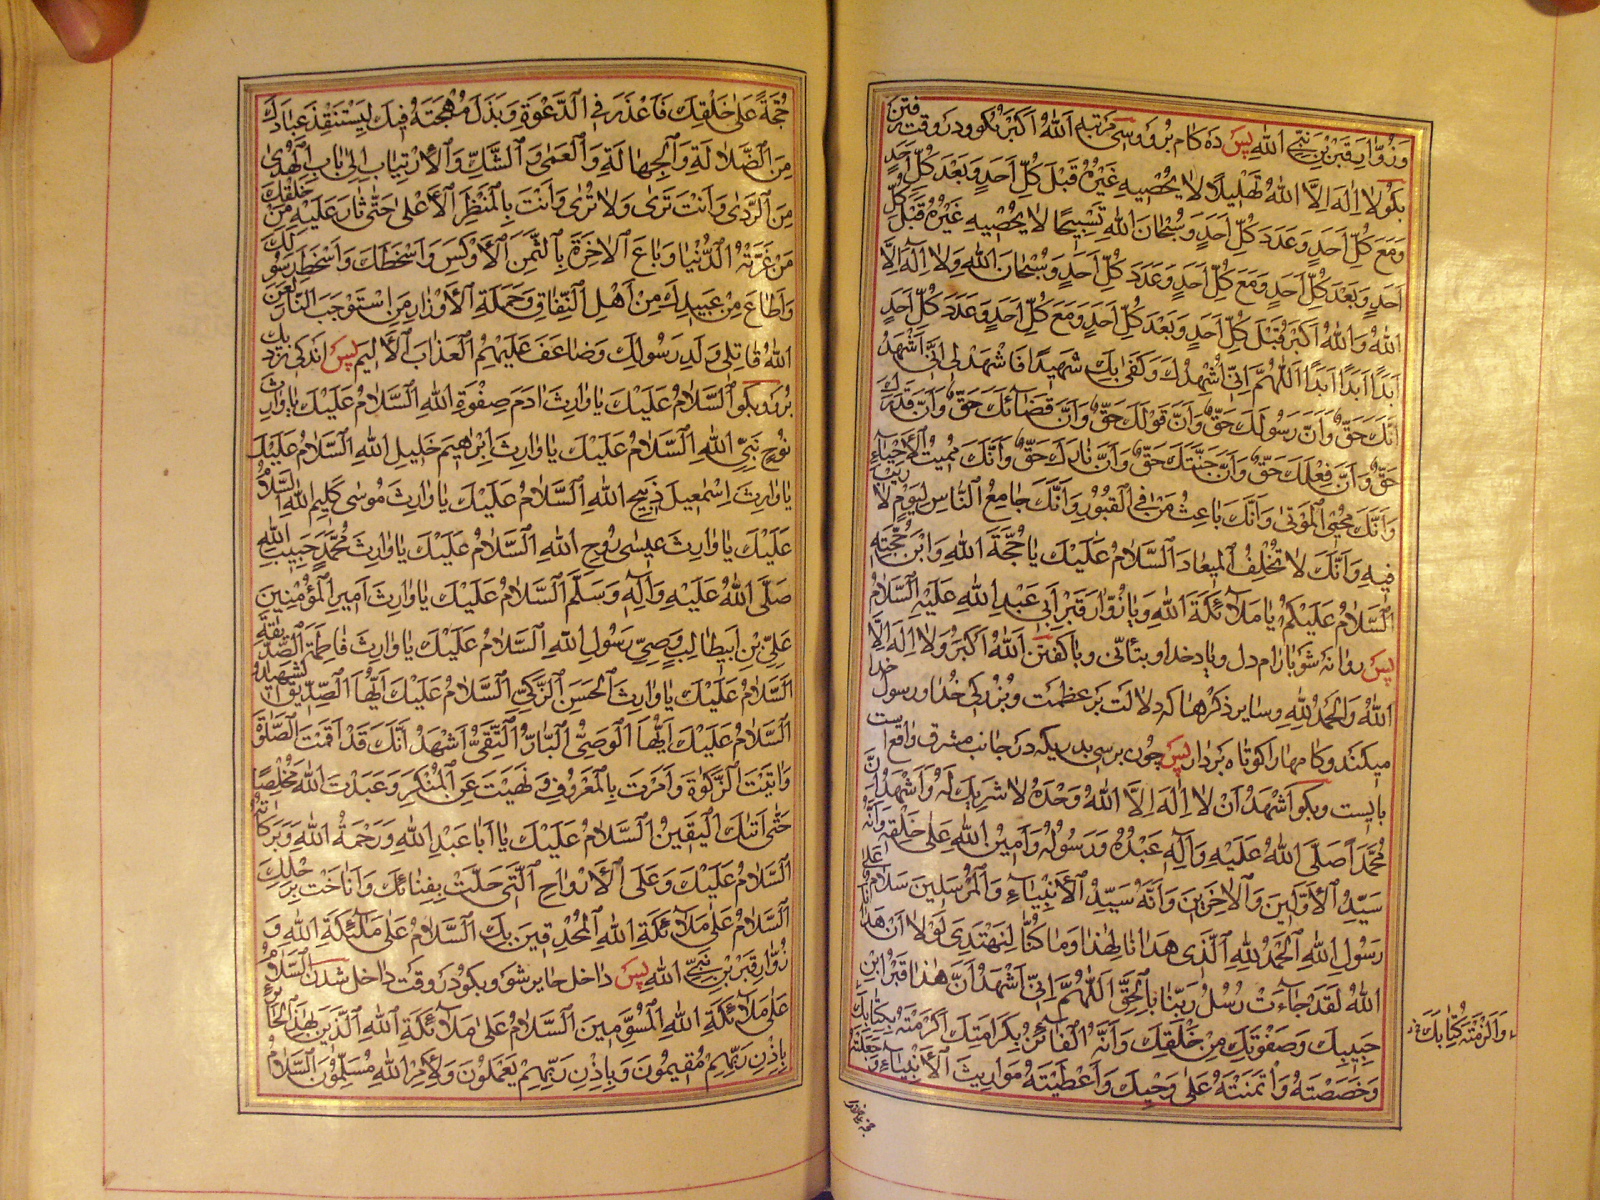 وَزُوّٰارِ قَبْرِ بْنِ نَبِيِّ اللّٰهِ پس ده كام برو و سى مرتبه اَللّٰهُ اَكْبَرُ بكو و در وقت رفتن
بكو لٰا اِلٰهَ اِلَّا اللّٰهُ تَهْلِيلًا لٰا يُحْصِيهِ غَيْرُهُ قَبْلَ كُلِّ اَحَدٍ وَبَعْدَ كُلِّ اَحَدٍ
وَمَعَ كُلِّ اَحَدٍ وَعَدَدَ كُلِّ اَحَدٍ وَسُبْحٰانَ اللّٰهِ تَسْبِيحًا لٰا يُحْصِيهِ غَيْرُهُ قَبْلَ كُلِّ
اَحَدٍ وَبَعْدَ كُلِّ اَحَدٍ وَمَعَ كُلِّ اَحَدٍ وَعَدَدَ كُلِّ اَحَدٍ وَسُبْحٰانَ اللّٰهِ وَلٰا اِلٰهَ اِلَّا
اللّٰهُ وَاللّٰهُ اَكْبَرُ قَبْلَ كُلِّ اَحَدٍ وَبَعْدَ كُلِّ اَحَدٍ وَمَعَ كُلِّ اَحَدٍ وَعَدَدَ كُلِّ اَحَدٍ
اَبَدًا اَبَدًا اَبَدًا اَللّٰهُمَّ اِنّى اُشْهِدُكَ وَكَفىٰ بِكَ شَهِيدًا فَاشْهَدْ لى اَنّى اَشْهَدُ
اَنَّكَ حَقٌّ وَاَنَّ رَسُولَكَ حَقٌّ وَاَنَّ قَوْلَكَ حَقٌّ وَاَنَّ قَضٰآئَكَ حَقٌّ وَاَنَّ قَدَرَكَ
حَقٌّ وَاَنَّ فِعْلَكَ حَقٌّ وَاَنَّ جَنَّتَكَ حَقٌّ وَاَنَّ نٰارَكَ حَقٌّ وَاَنَّكَ مُمِيتُ الْاَحْيٰآءِ
وَاَنَّكَ مُحْيِى الْمَوْتىٰ وَاَنَّكَ بٰاعِثُ مَنْ فِى الْقُبُورِ وَاَنَّكَ جٰامِعُ النّٰاسِ لِيَوْمٍ لٰا رَيْبَ
فِيهِ وَاَنَّكَ لٰا تُخْلِفُ الْمِيعٰادَ اَلسَّلٰامُ عَلَيْكَ يٰا حُجَّةَ اللّٰهِ وَابْنَ حُجَّتِهِ
اَلسَّلٰامُ عَلَيْكُمْ يٰا مَلٰآئِكَةَ اللّٰهِ وَيٰا زُوّٰارَ قَبْرِ اَبى عَبْدِ اللّٰهِ عَلَيْهِ السَّلٰامُ
پس روانه شو با آرام دل و ياد خدا و بتأنّى و با كفتن اَللّٰهُ اَكْبَرُ وَلٰا اِلٰهَ اِلَّا
اللّٰهُ وَالْحَمْدُ لِلّٰهِ و ساير ذكرها كه دلالت بر عظمت و بزركى خدا و رسول خدا
ميكنند و كامها را كوتاه بردار پس چون برسى بدريكه در جانب مشرق واقع است
بايست و بكو اَشْهَدُ اَنْ لٰا اِلٰهَ اِلَّا اللّٰهُ وَحْدَهُ لٰا شَرِيكَ لَهُ وَاَشْهَدُ اَنَّ
مُحَمَّدًا صَلَّى اللّٰهُ عَلَيْهِ وَاٰلِهِ عَبْدُهُ وَرَسُولُهُ وَاَمِينُ اللّٰهِ عَلىٰ خَلْقِهِ وَاَنَّهُ
سَيِّدُ الْاَوَّلِينَ وَالْاٰخِرِينَ وَاَنَّهُ سَيِّدُ الْاَنْبِيٰآءِ وَالْمُرْسَلِينَ سَلٰامٌ عَلىٰ
رَسُولِ اللّٰهِ اَلْحَمْدُ لِلّٰهِ الَّذى هَدٰانٰا لِهٰذٰا وَمٰا كُنّٰا لِنَهْتَدِىَ لَوْلٰا اَنْ هَدٰانَا
اللّٰهُ لَقَدْ جٰآءَتْ رُسُلُ رَبِّنٰا بِالْحَقِّ اَللّٰهُمَّ اِنّى اَشْهَدُ اَنَّ هٰذٰا قَبْرُ ابْنِ
حَبِيبِكَ وَصَفْوَتِكَ مِنْ خَلْقِكَ وَاَنَّهُ الْفٰآئِزُ بِكَرٰامَتِكَ اَكْرَمْتَهُ بِكِتٰابِكَ
وَخَصَصْتَهُ وَائْتَمَنْتَهُ عَلىٰ وَحْيِكَ وَاَعْطَيْتَهُ مَوٰارِيثَ الْاَنْبِيٰآءِ وَجَعَلْتَهُ
وَاَلْزَمْتَهُ كِتٰابَكَ
حُجَّةً عَلىٰ خَلْقِكَ فَاَعْذَرَ فِى الدَّعْوَةِ وَبَذَلَ مُهْجَتَهُ فِيكَ لِيَسْتَنْقِذَ عِبٰادَكَ
مِنَ الضَّلٰالَةِ وَالْجَهٰالَةِ وَالْعَمىٰ وَالشَّكِّ وَالْاِرْتِيٰابِ اِلىٰ بٰابِ الْهُدىٰ
مِنَ الرَّدىٰ وَاَنْتَ تَرىٰ وَلٰا تُرىٰ وَاَنْتَ بِالْمَنْظَرِ الْاَعْلىٰ حَتّىٰ ثٰارَ عَلَيْهِ مِنْ خَلْقِكَ
مَنْ غَرَّتْهُ الدُّنْيٰا وَبٰاعَ الْاٰخِرَةَ بِالثَّمَنِ الْاَوْكَسِ وَاَسْخَطَكَ وَاَسْخَطَ رَسُولَكَ
وَاَطٰاعَ مِنْ عَبِيدِكَ مِنْ اَهْلِ النِّفٰاقِ وَحَمَلَةِ الْاَوْزٰارِ مَنِ اسْتَوْجَبَ النّٰارَ لَعَنَ
اللّٰهُ قٰاتِلى وَلَدِ رَسُولِكَ وَضٰاعَفَ عَلَيْهِمُ الْعَذٰابَ الْاَلِيمَ پس اندكى نزديك
برو و بكو اَلسَّلٰامُ عَلَيْكَ يٰا وٰارِثَ اٰدَمَ صِفْوَةِ اللّٰهِ اَلسَّلٰامُ عَلَيْكَ يٰا وٰارِثَ
نُوحٍ نَبِىِّ اللّٰهِ اَلسَّلٰامُ عَلَيْكَ يٰا وٰارِثَ اِبْرٰهِيمَ خَلِيلِ اللّٰهِ اَلسَّلٰامُ عَلَيْكَ
يٰا وٰارِثَ اِسْمٰعِيلَ ذَبِيحِ اللّٰهِ اَلسَّلٰامُ عَلَيْكَ يٰا وٰارِثَ مُوسىٰ كَلِيمِ اللّٰهِ اَلسَّلٰامُ
عَلَيْكَ يٰا وٰارِثَ عِيسىٰ رُوحِ اللّٰهِ اَلسَّلٰامُ عَلَيْكَ يٰا وٰارِثَ مُحَمَّدٍ حَبِيبِ اللّٰهِ
صَلَّى اللّٰهُ عَلَيْهِ وَاٰلِهِ وَسَلَّمَ اَلسَّلٰامُ عَلَيْكَ يٰا وٰارِثَ اَمِيرِ الْمُؤْمِنِينَ
عَلِىِّ بْنِ اَبِيطٰالِبٍ وَصِىِّ رَسُولِ اللّٰهِ اَلسَّلٰامُ عَلَيْكَ يٰا وٰارِثَ فٰاطِمَةَ الصِّدِّيقَةِ
اَلسَّلٰامُ عَلَيْكَ يٰا وٰارِثَ الْحَسَنِ الزَّكِىِّ اَلسَّلٰامُ عَلَيْكَ اَيُّهَا الصِّدِّيقُ الشَّهِيدُ
اَلسَّلٰامُ عَلَيْكَ اَيُّهَا الْوَصِىُّ الْبٰارُّ التَّقِىُّ اَشْهَدُ اَنَّكَ قَدْ اَقَمْتَ الصَّلٰوةَ
وَاٰتَيْتَ الزَّكٰوةَ وَاَمَرْتَ بِالْمَعْرُوفِ وَنَهَيْتَ عَنِ الْمُنْكَرِ وَعَبَدْتَ اللّٰهَ مُخْلِصًا
حَتّىٰ اَتٰيكَ الْيَقِينُ اَلسَّلٰامُ عَلَيْكَ يٰا اَبٰا عَبْدِ اللّٰهِ وَرَحْمَةُ اللّٰهِ وَبَرَكٰاتُهُ
اَلسَّلٰامُ عَلَيْكَ وَعَلَى الْاَرْوٰاحِ الَّتى حَلَّتْ بِفِنٰائِكَ وَاَنٰاخَتْ بِرَحْلِكَ
اَلسَّلٰامُ عَلىٰ مَلٰآئِكَةِ اللّٰهِ الْمُحْدِقِينَ بِكَ اَلسَّلٰامُ عَلىٰ مَلٰئِكَةِ اللّٰهِ وَ
زُوّٰارِ قَبْرِ بْنِ نَبِىِّ اللّٰهِ پس داخل حاير شو و بكو در وقت داخل شدن اَلسَّلٰامُ
عَلىٰ مَلٰآئِكَةِ اللّٰهِ الْمُسَوِّمِينَ اَلسَّلٰامُ عَلىٰ مَلٰآئِكَةِ اللّٰهِ الَّذِينَ بِهٰذَا الْحٰائِرِ
بِاِذْنِ رَبِّهِمْ مُقِيمُونَ وَبِاِذْنِ رَبِّهِمْ يَعْمَلُونَ وَلِاَمْرِ اللّٰهِ مُسَلِّمُونَ اَلسَّلٰامُ